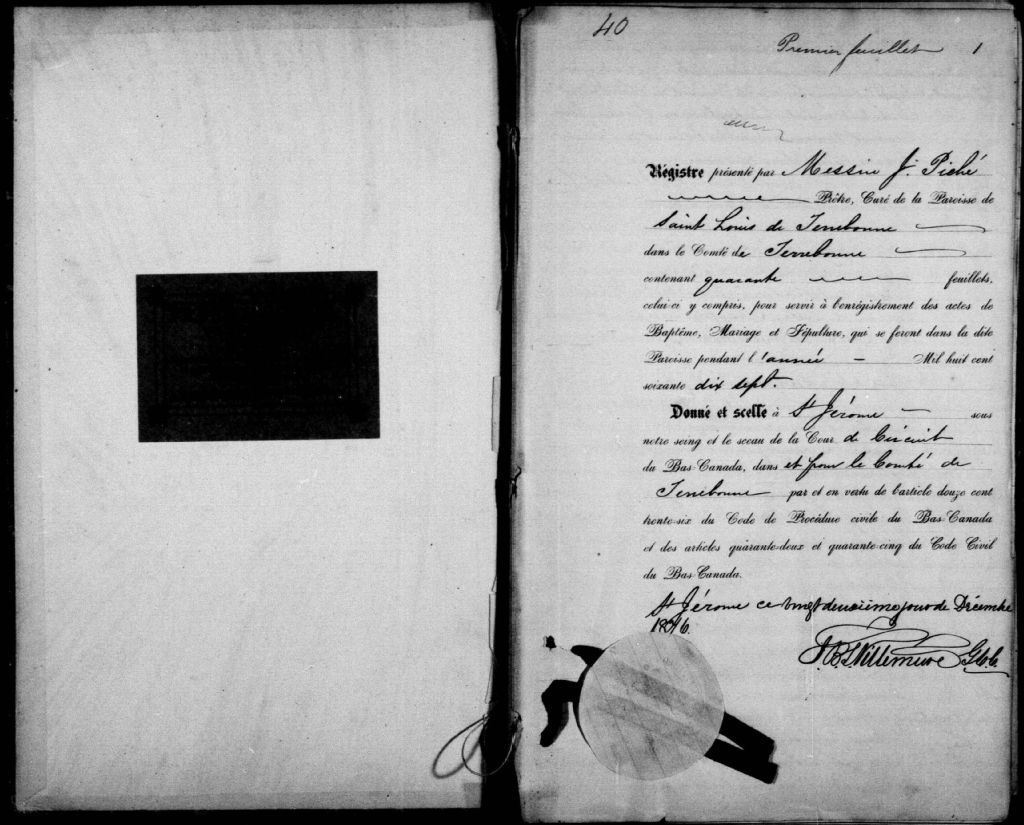 40
Premier feuillet 1
Régistre présenté par Messire J. Piché
Prêtre, Curé de la Paroisse de
Saint Louis de Terrebonne
dans le Comté de Terrebonne
contenant quarante feuillets,
celui-ci y compris, pour servir à l'enrégistrement des actes de
Baptême, Mariage et Sépulture, qui se feront dans la dite
Paroisse pendant l'année Mil huit cent
soixante dix sept.
Donné et scellé à St Jérome sous
notre seing et le sceau de la Cour de Circuit
du Bas-Canada, dans et pour le Comté de
Terrebonne par et en vertu de l'article douze cent
trente-six du Code de Procédure civile du Bas-Canada
et des articles quarante-deux et quarante-cinq du Code Civil
du Bas-Canada.
St Jérome ce vingt deuxième jour de Décembre
1876.